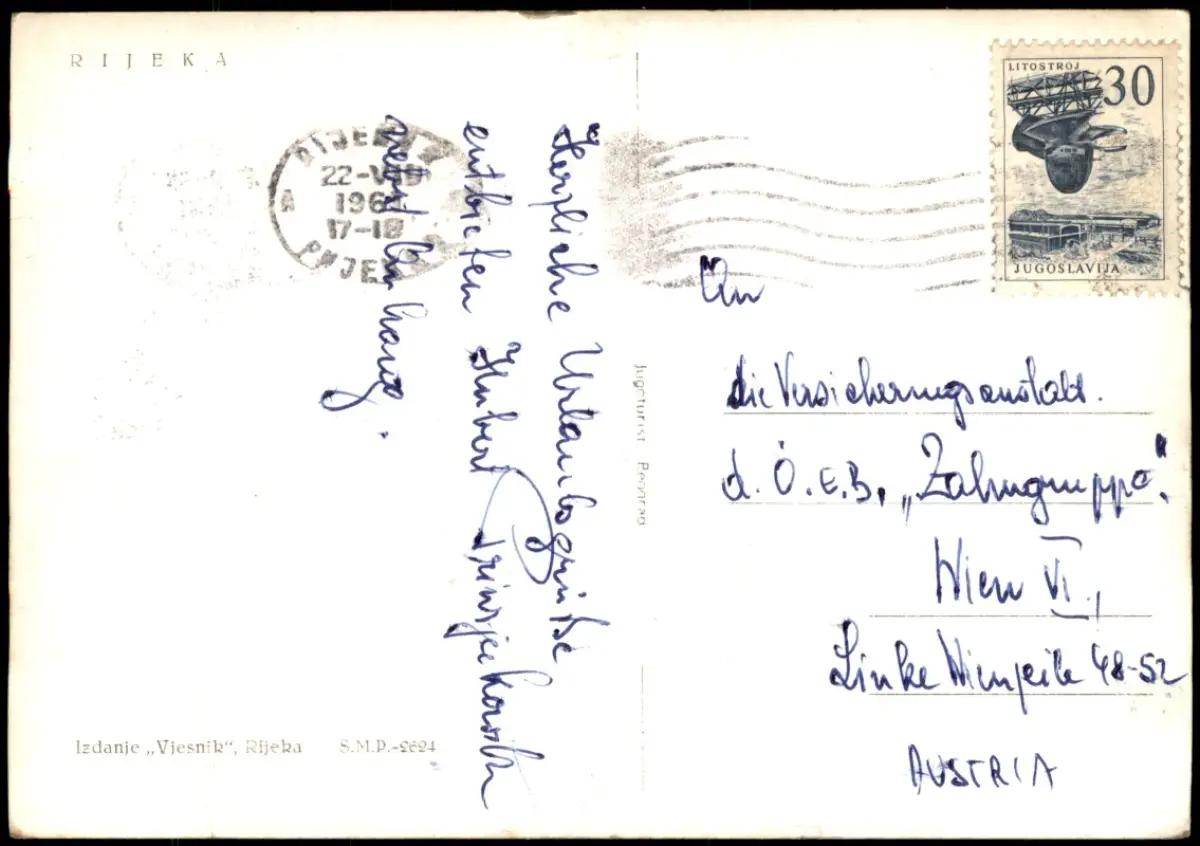 RIJEKA
RIJEKA
22-VIII
196
17-18
A
RIJEKA
LITOSTROJ
30
JUGOSLAVIJA
Herzliche Urlaubsgrüße
entbieten Hubert
nebst Anhang.
Jugoturist Beograd
An
die Versicherungsanstalt.
d. Ö.E.B. „Zahngruppe“.
Wien VI.,
Linke Wienzeile 48-52
AUSTRIA
Izdanje „Vjesnik“, Rijeka S.M.P.-2624